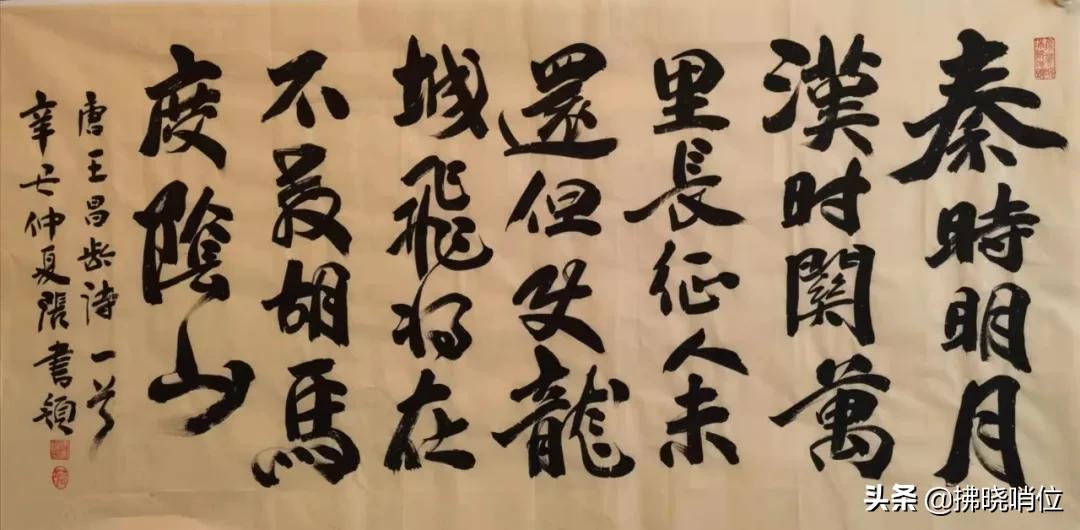 秦時明月
漢时関萬
里長征人未
還但使龍
城飛将在
不教胡馬
度陰山
唐王昌龄诗一首
辛丑仲夏張書領
头条 @拂晓哨位